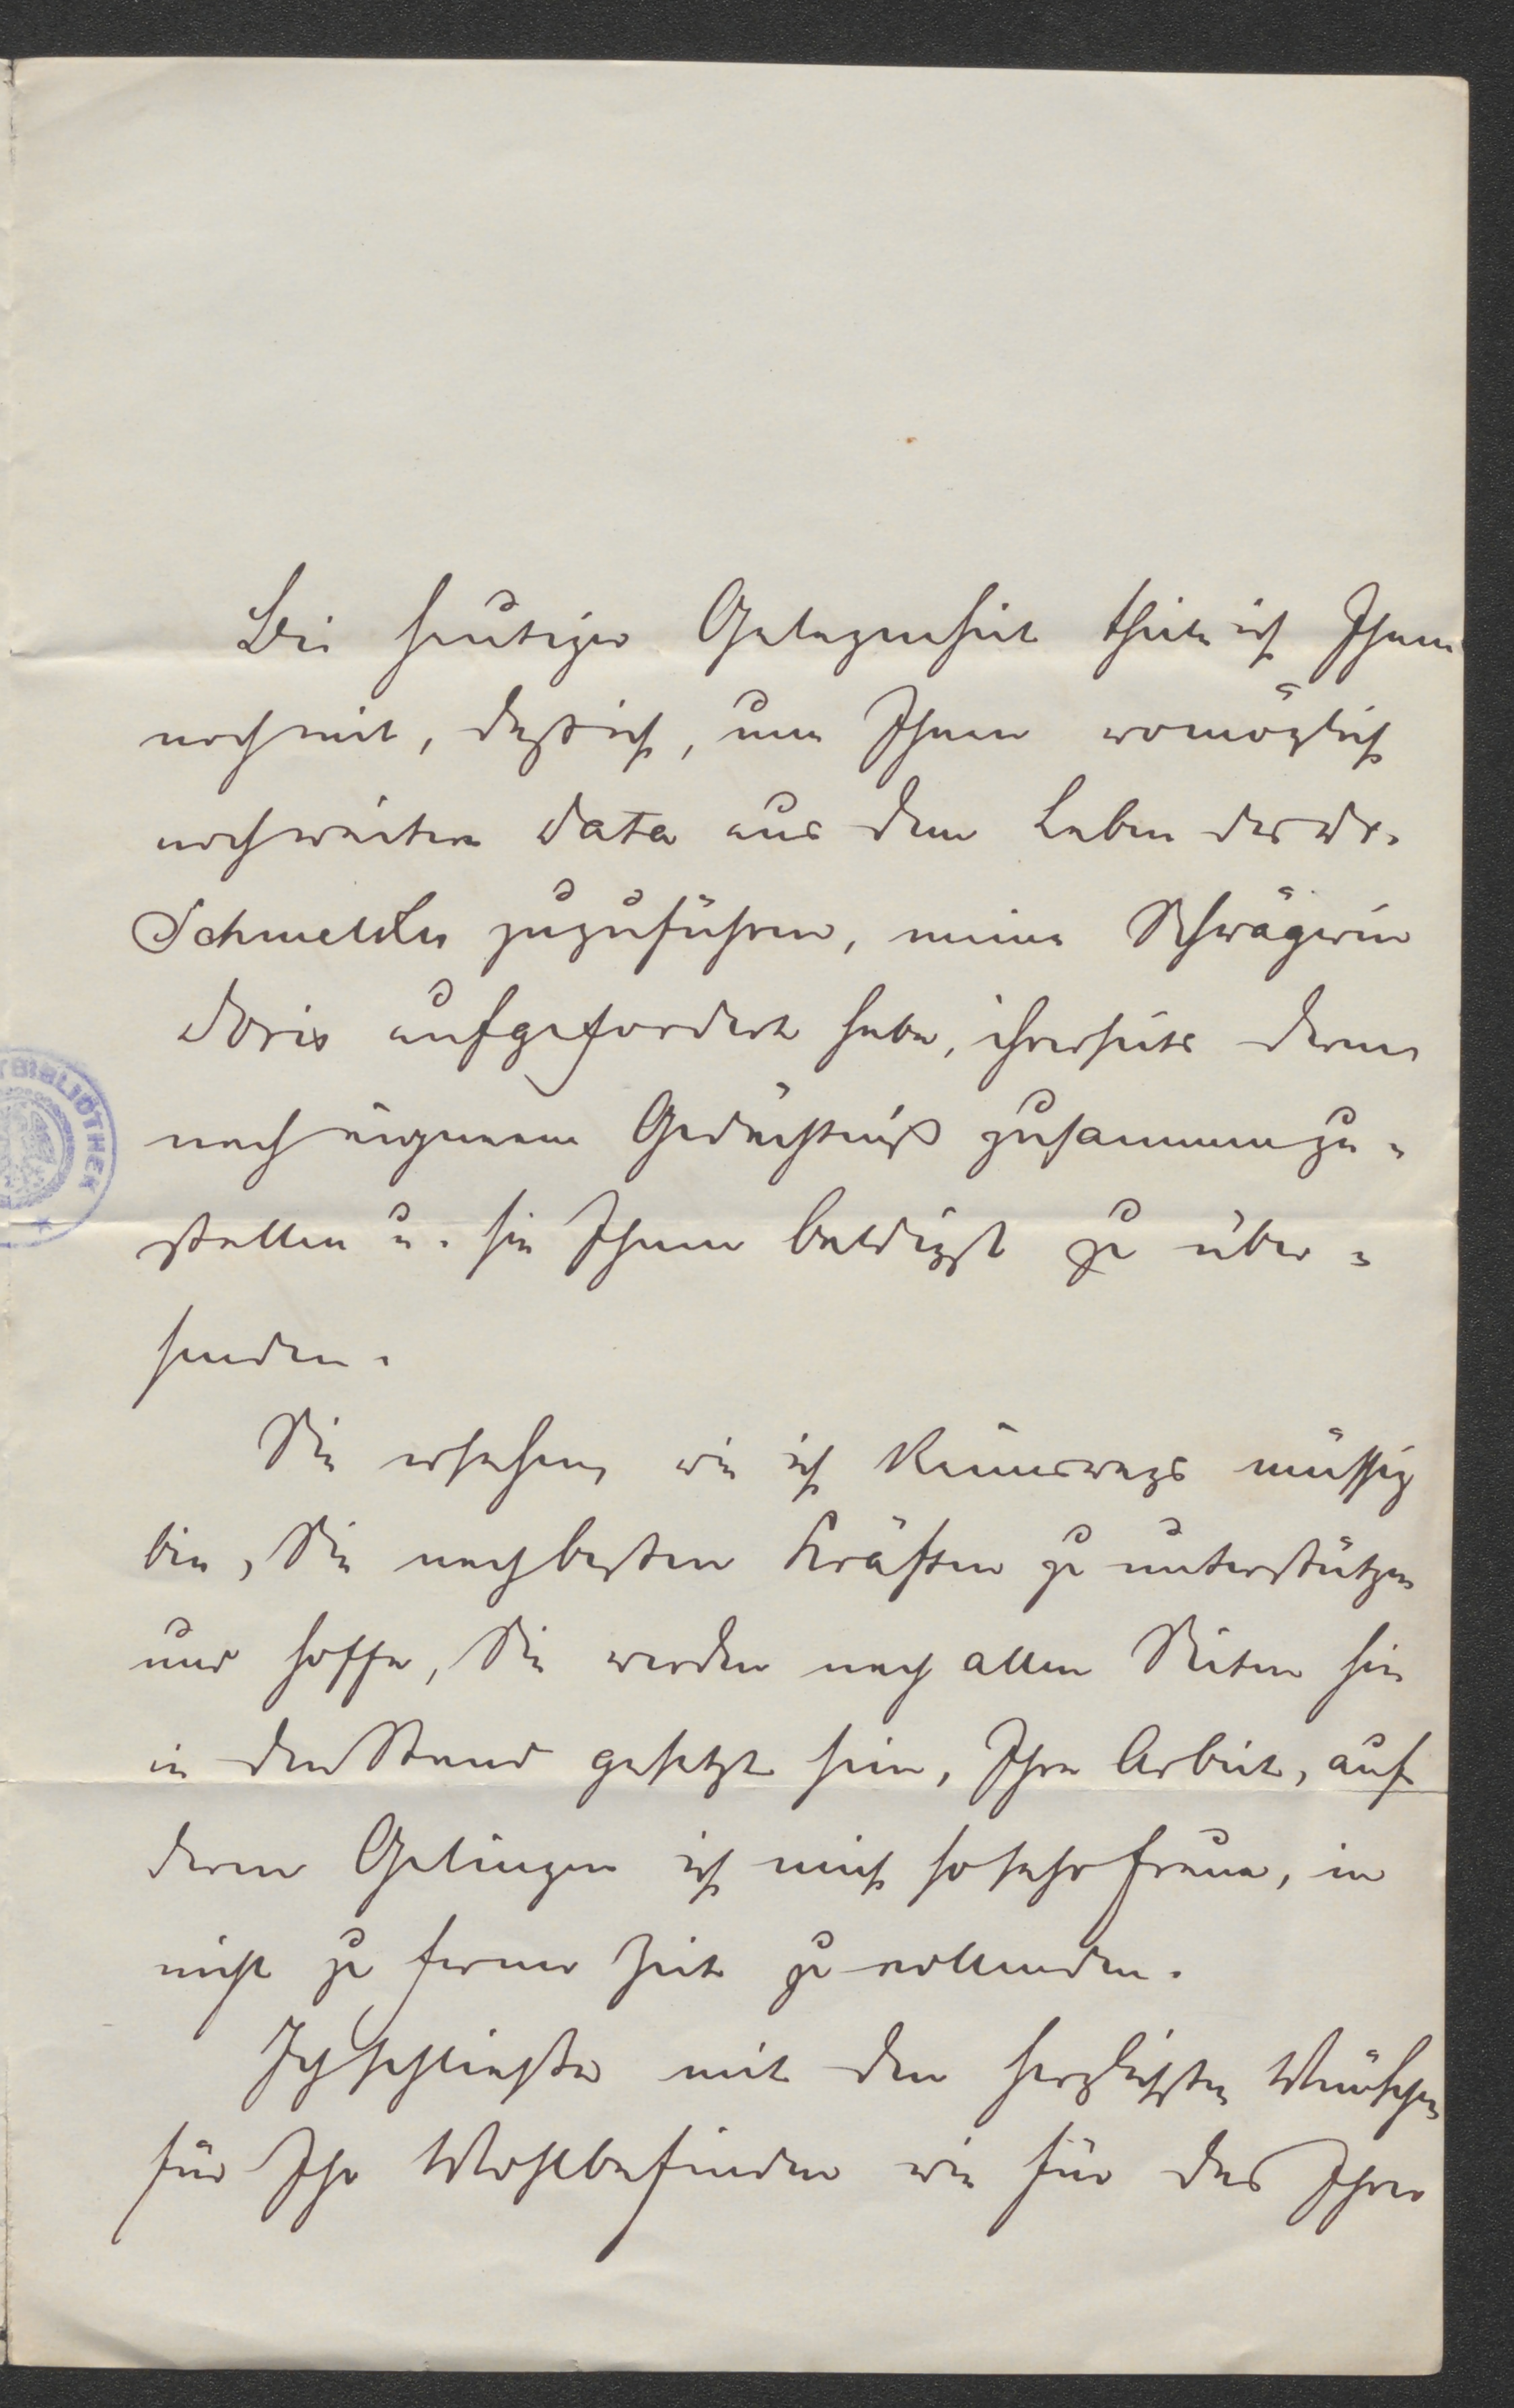 Bei heutiger Gelegenheit theile ich Ihnen
noch mit, daß ich, um Ihnen womöglich
noch weitere Data aus dem Leben des Dr.
zuzuführen, meine Schwägerin
Doris aufgefordert habe, ihrerseits deren
nach eigenem Gedächtniß zusammenzu-
stellen u. sie Ihnen baldigst zu über-
senden.
Sie ersehen, wie ich keineswegs müssig
bin, Sie nach besten Kräften zu unterstützen
und hoffe, Sie werden nach allen Seiten hin
in den Stand gesetzt sein, Ihre Arbeit, auf
deren Gelingen ich mich so sehr freue, in
nicht zu ferner Zeit zu vollenden.
Ich schließe mit den herzlichsten Wünschen
für Ihr Wohlbefinden wie für das Ihrer
BIBLIOTHEK